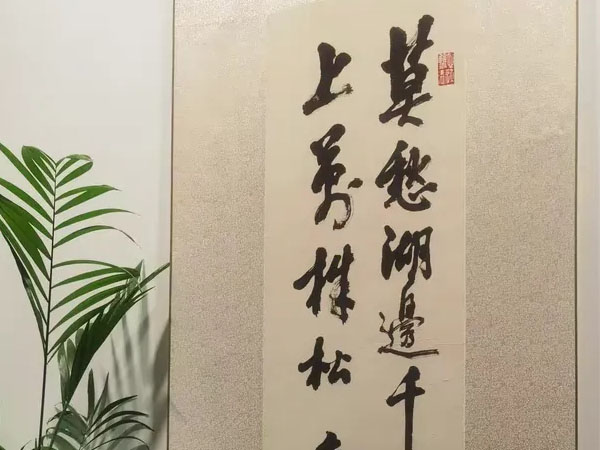 莫愁湖邊千
上萬株松